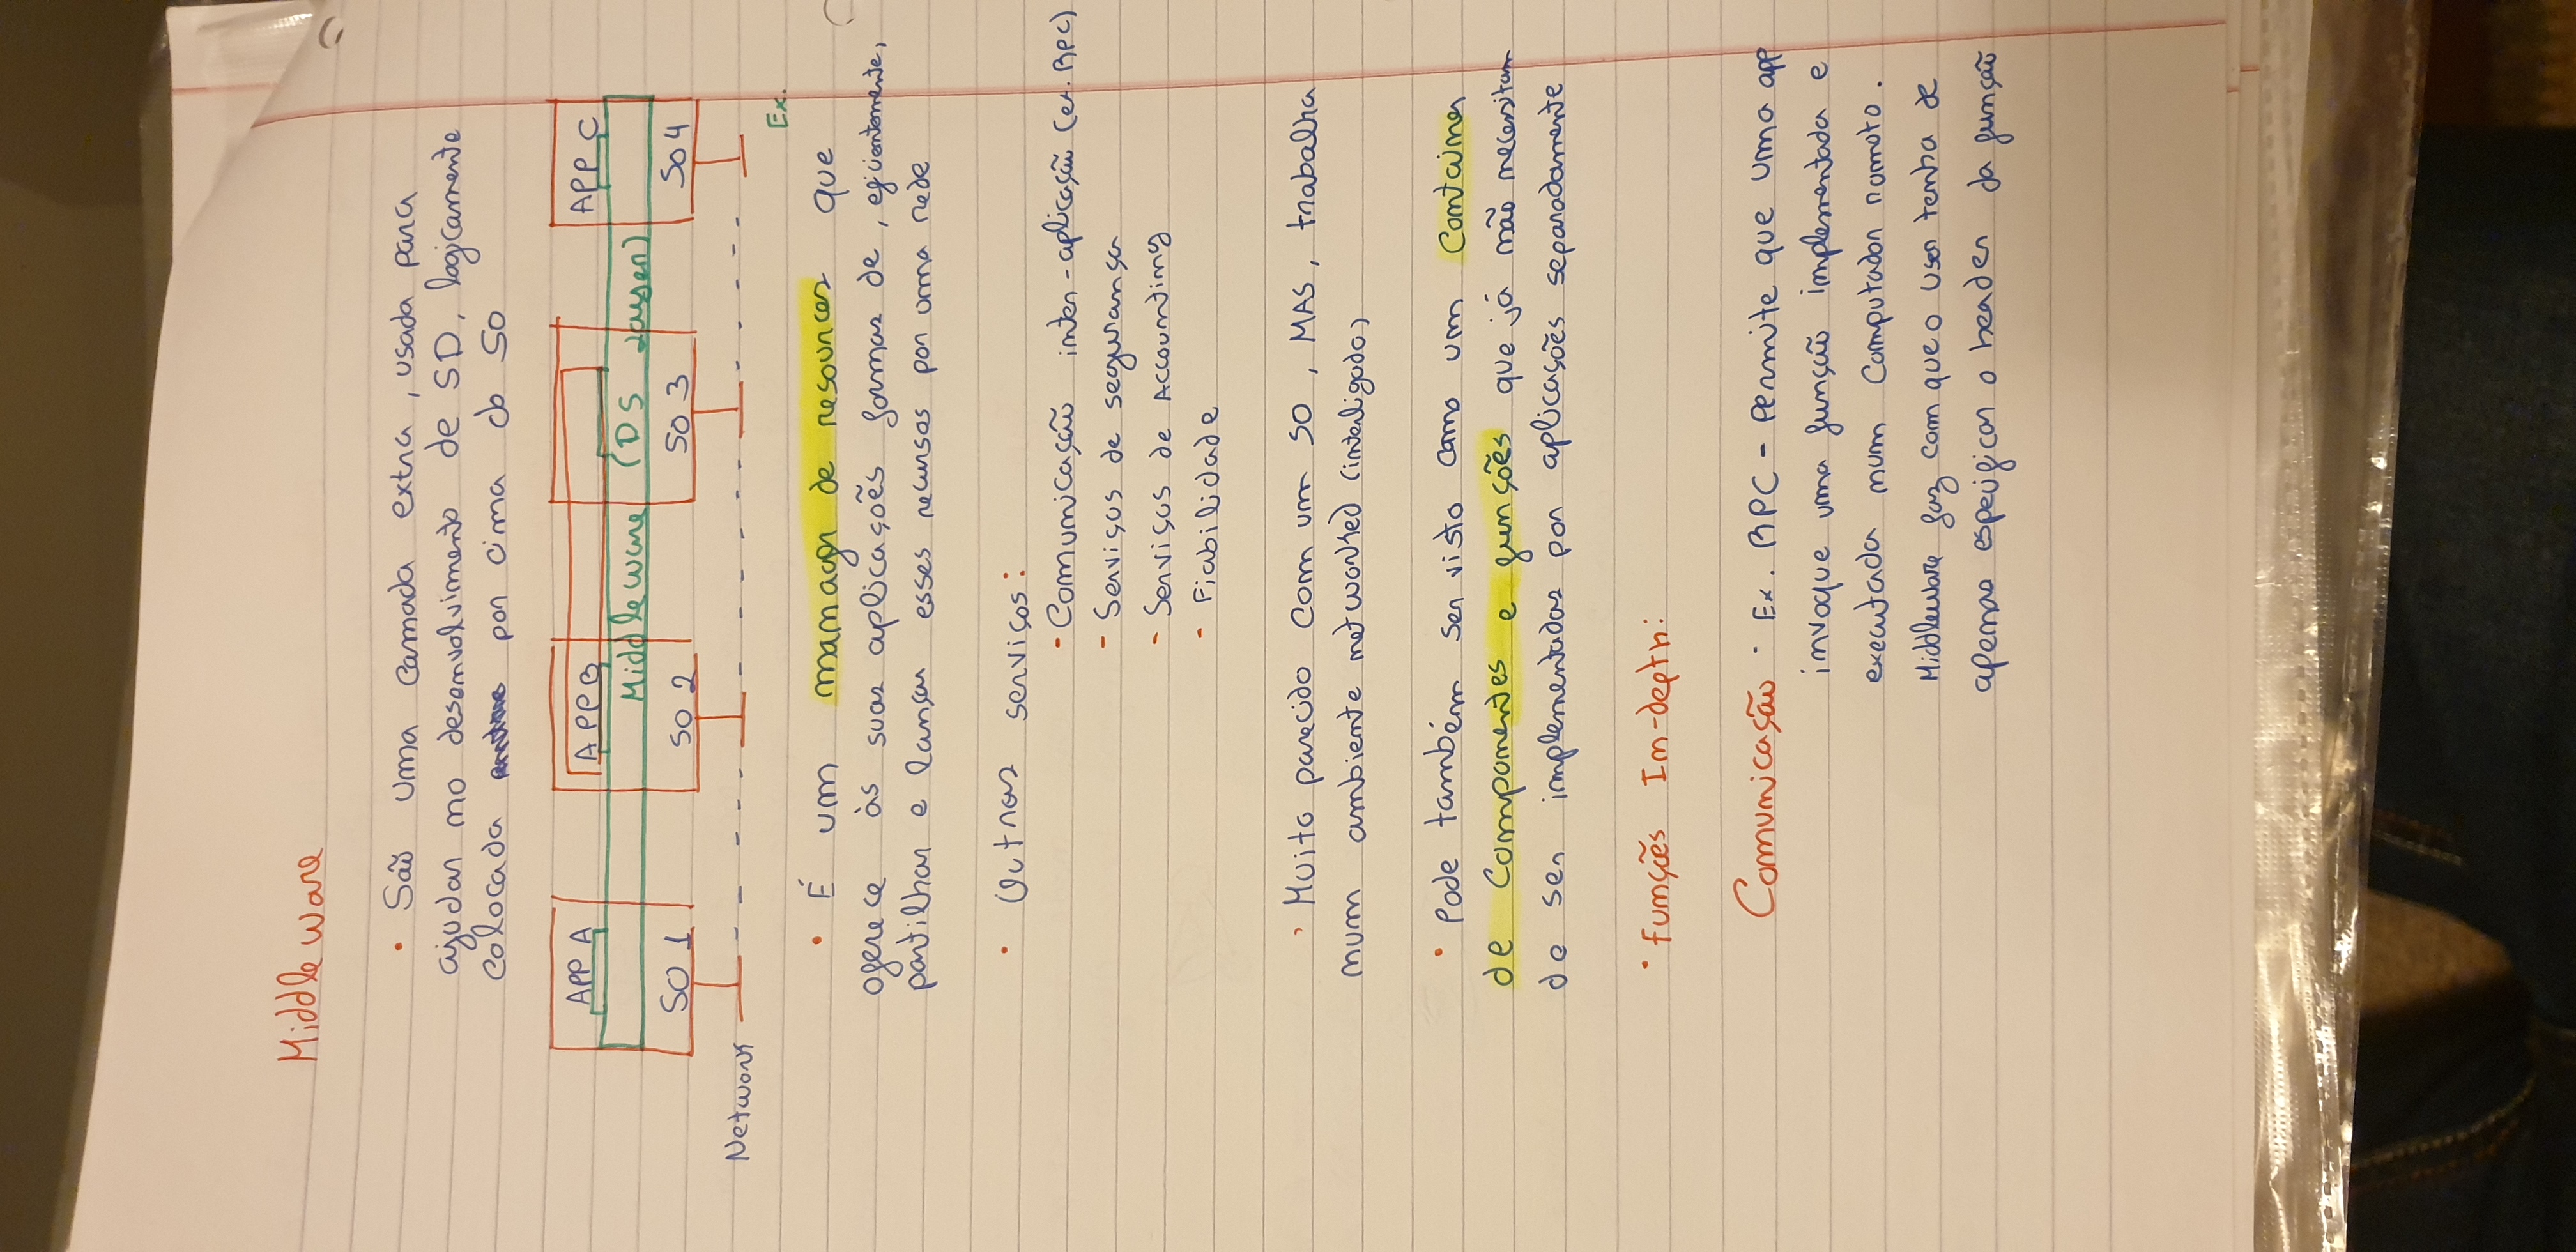 Middleware
• São uma camada extra, usada para
ajudar no desenvolvimento de SD, logicamente
colocada por cima do SO
APP A APP B APP C
Middleware (DS Layer)
SO 1 SO 2 SO 3 SO 4
Network
Ex.
• É um manager de resources que
oferece às suas aplicações formas de, eficientemente,
partilhar e lançar esses recursos por uma rede
• Outros serviços:
- Comunicação inter-aplicação (ex. RPC)
- Serviços de segurança
- Serviços de Accounting
- Fiabilidade
• Muito parecido com um SO, MAS, trabalha
num ambiente networked (interligado)
• Pode também ser visto como um container
de componentes e funções que já não necessitam
de ser implementadas por aplicações separadamente
• Funções In-depth:
Comunicação • Ex. RPC - Permite que uma app
invoque uma função implementada e
executada num computador remoto.
Middleware faz com que o user tenha de
apenas especificar o header da função